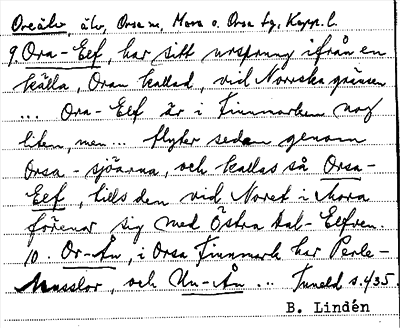 Oreälv, älv, Orsa sn, Mora o. Orsa tg, Kopp. l.
9. Ora-Eef, har sitt ursprung ifrån en
källa, Oran kallad, vid Norrska gränsen
... Ora-Eef är i Finnmarken nog
liten, men... flyter sedan genom
Orsa-sjöarna, och kallas så Orsa-
Eef, tills den vid Noret i Mora
förenar sig med Östra Dal-Eefven.
10. Or-Ån, i Orsa Finnmark har Perle-
Musslor, och Un-Ån... Tuneld s. 435.
B. Lindén